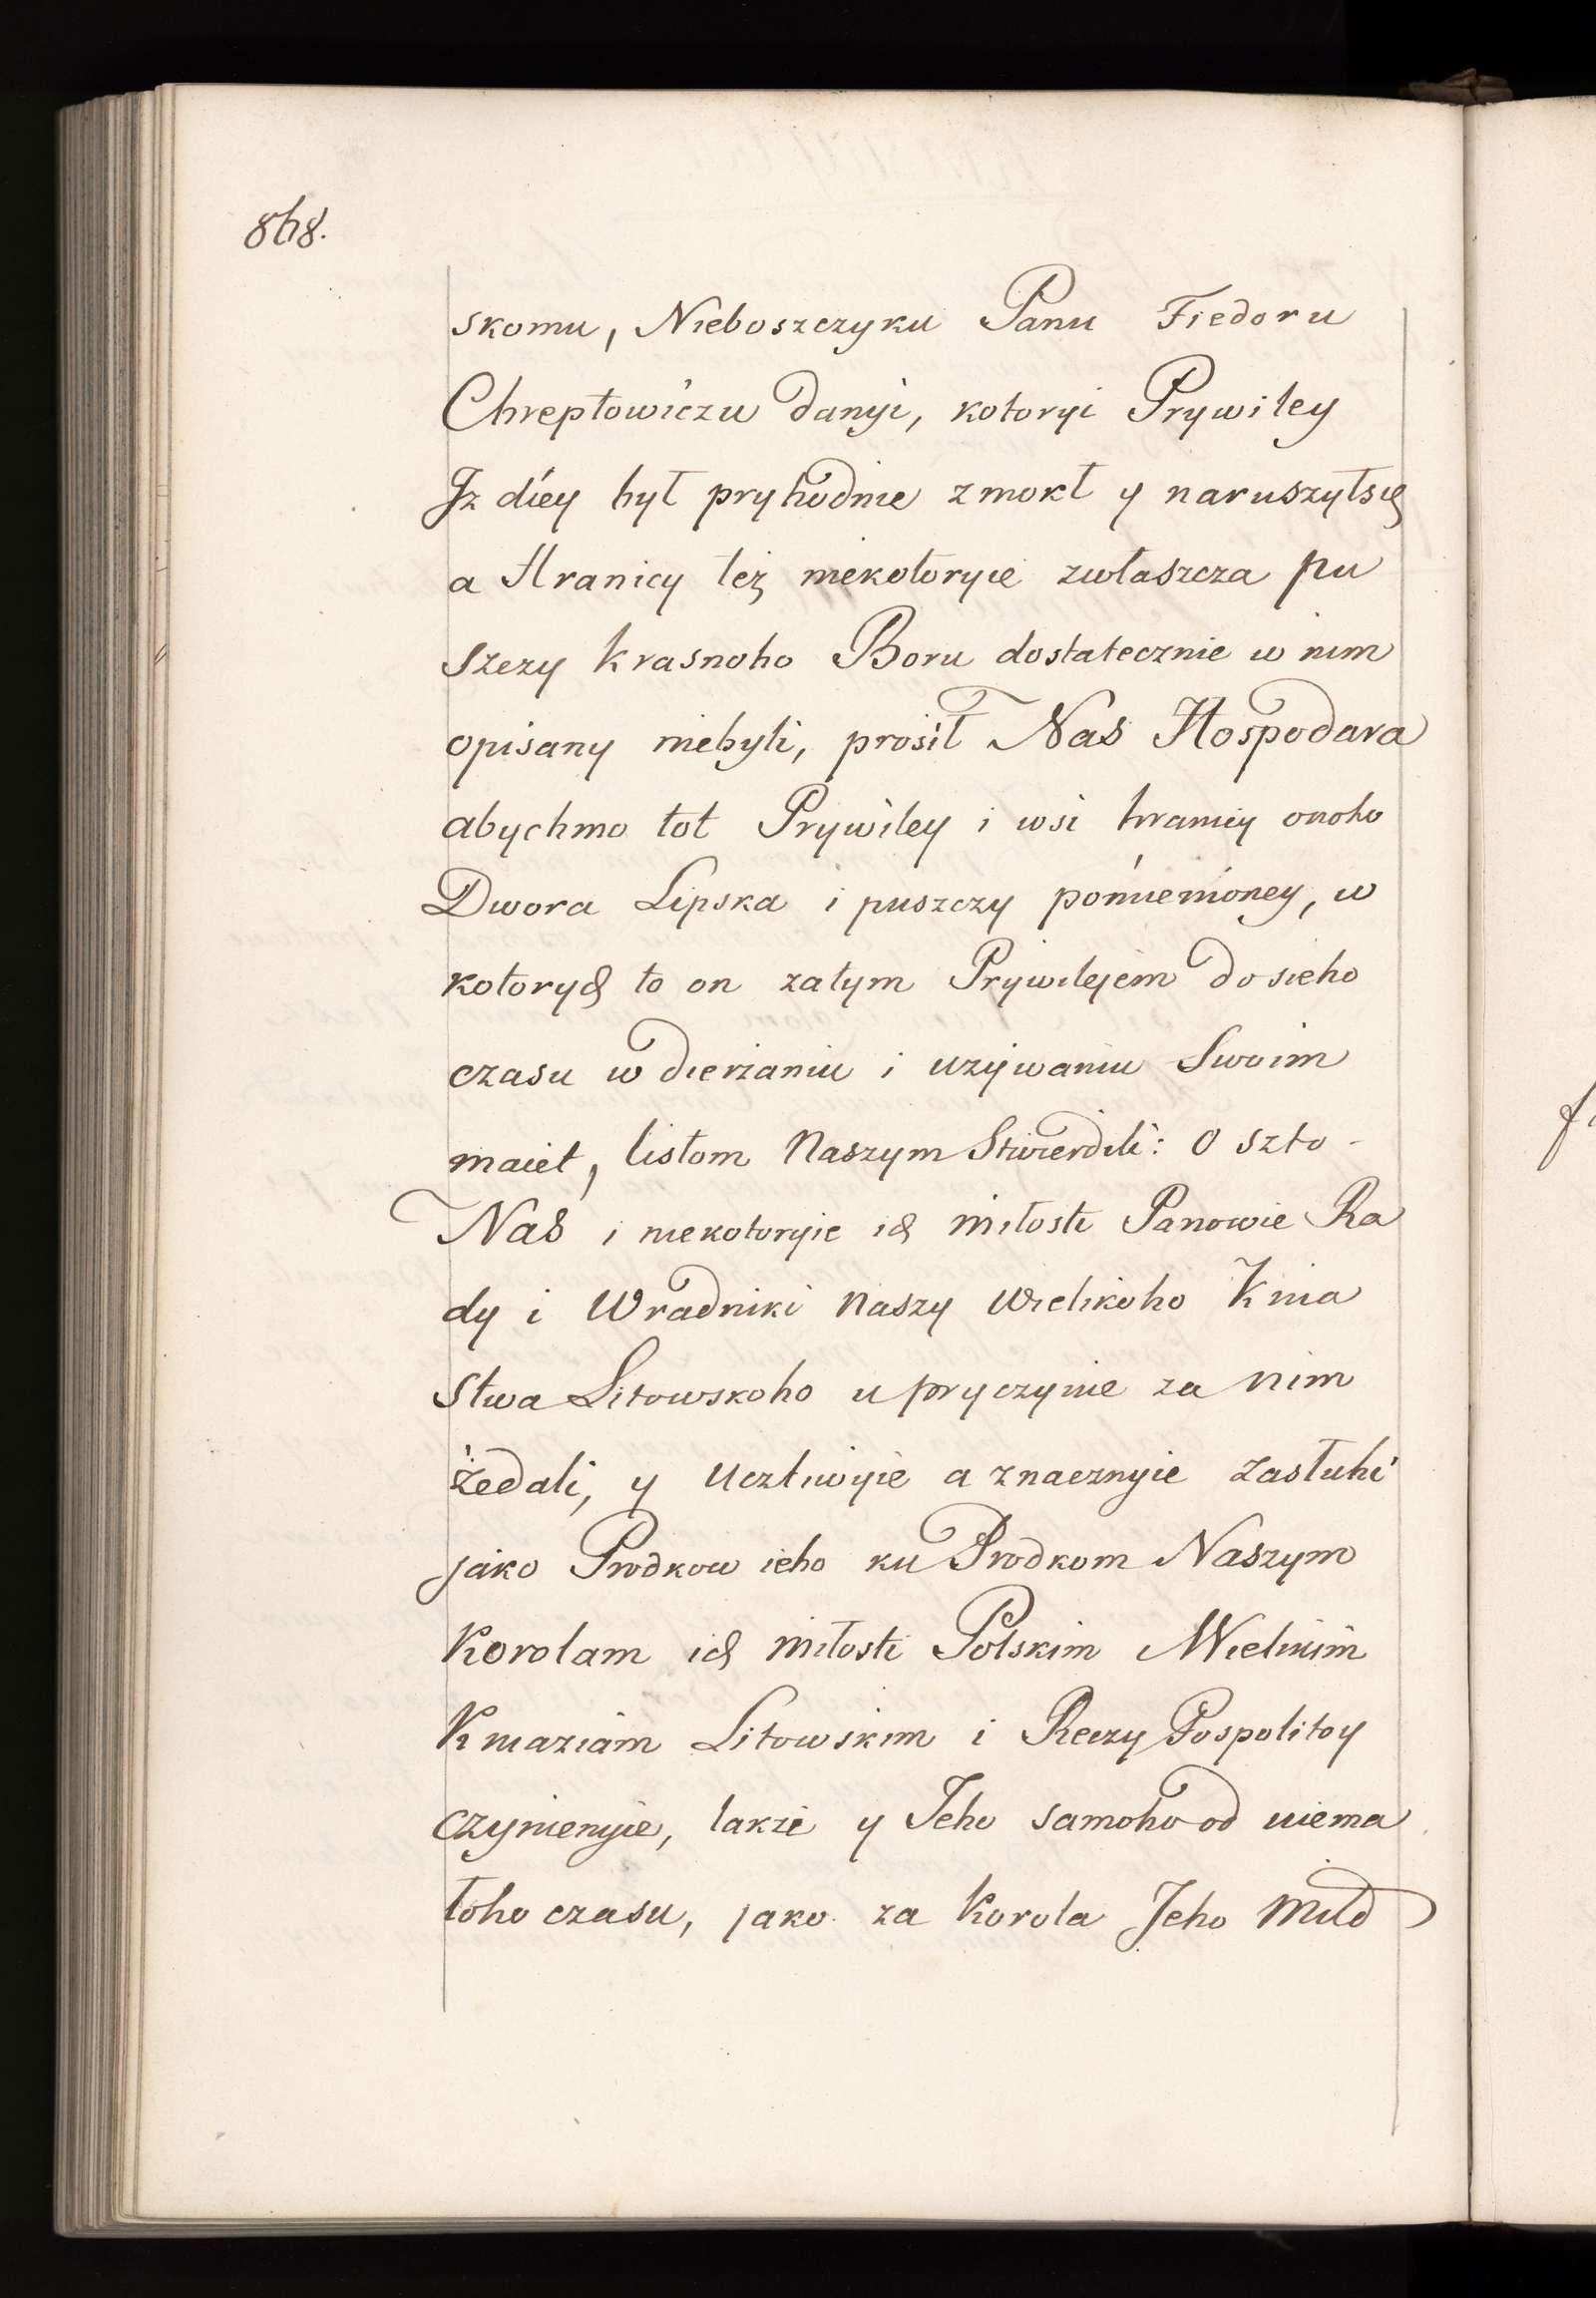 848.
skomu, Nieboszczyku Panu Fiedoru
Chreptowiczu danyi, kotoryi Prywiley
Jz diey był pryhodnie zmokł y naruszyłsię
a Hranicy też niekotoryie zwłaszcza pu
szczy Krasnoho Boru dostatecznie w nim
opisany niebyli, prosił Nas Hospodara
abychmo tot Prywiley i wsi hranicy onoho
Dwora Lipska i puszczy pomienioney, w
kotorych to on zatym Prywilejem do sieho
czasu w dierżaniu i używaniu Swoim
maiet, listom Naszym Stwierdili: O szto
Nas i niekotoryie ich miłosti Panowie Ra
dy i Wradniki Naszy Wielikoho Knia
stwa Litowskoho u pryczynie za nim
żedali, y Ucztiwyie a znacznyie zasłuhi
jako Prodkow ieho ku Prodkom Naszym
Korolam ich miłosti Polskim Wielikim
Kniaziam Litowskim i Reczy Pospolitoy
czynienyie, także y Jeho samoho od niema
łoho czasu, jako za Korola Jeho Miło